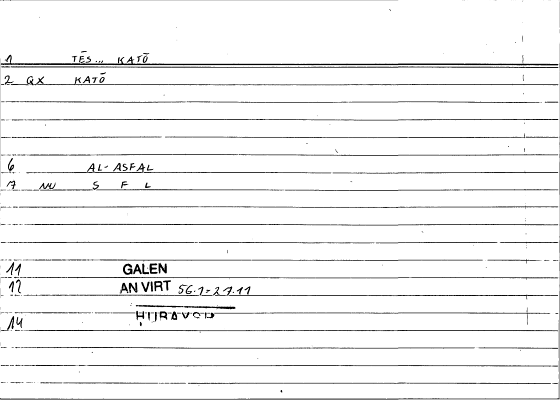 1 TĒS... KATŌ
2 QX KATŌ
6 AL-ASFAL
7 NU S F L
11 GALEN
12 AN VIRT 56.1=27.11
14